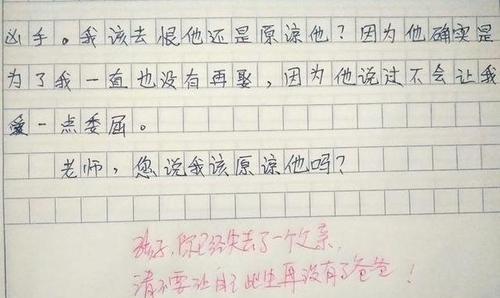 凶手。我该去恨他还是原谅他？因为他确实是
为了我一直也没有再娶，因为他说过不会让我
受一点委屈。
老师，您说我该原谅他吗？
孩子，你已经失去了一个父亲，
请不要让自己此生再没有了爸爸！